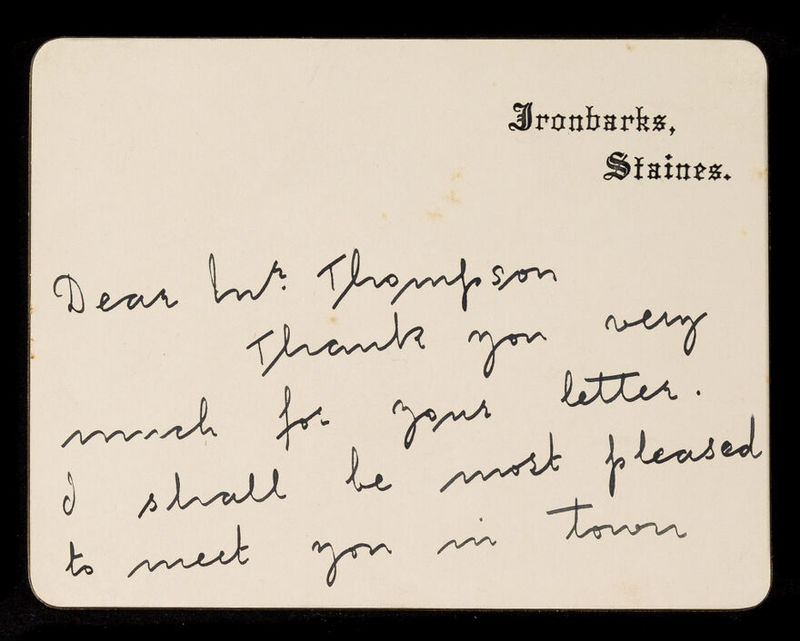 Ironbarks,
Staines.
Dear Mr. Thompson
Thank you very
much for your letter.
I shall be most pleased
to meet you in town